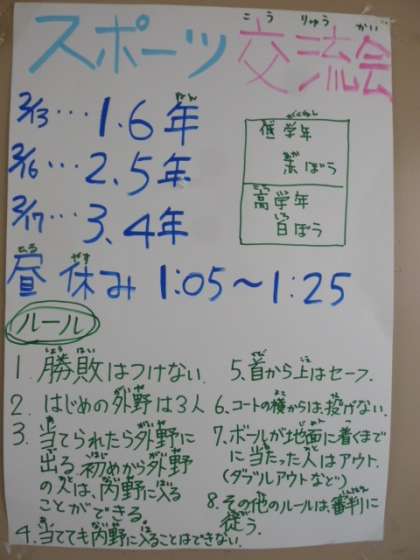 スポーツ交流会
こう りゅう かい
3/13…1.6年
ねん
3/16…2.5年
3/17…3.4年
低学年
ていがくねん
赤ぼう
あか
高学年
こう
白ぼう
しろ
昼休み 1:05~1:25
ひる やす
ルール
1. 勝敗はつけない.
2. はじめの外野は3人
3. 当てられたら外野に
出る. 初めから外野
の人は、内野に入る
ことができる.
4. 当てても内野に入ることはできない.
5. 首から上はセーフ.
6. コートの横からは、投げない.
7. ボールが地面に着くまで
に当たった人はアウト.
(ダブルアウトなど)
8. その他のルールは、審判に
従う.